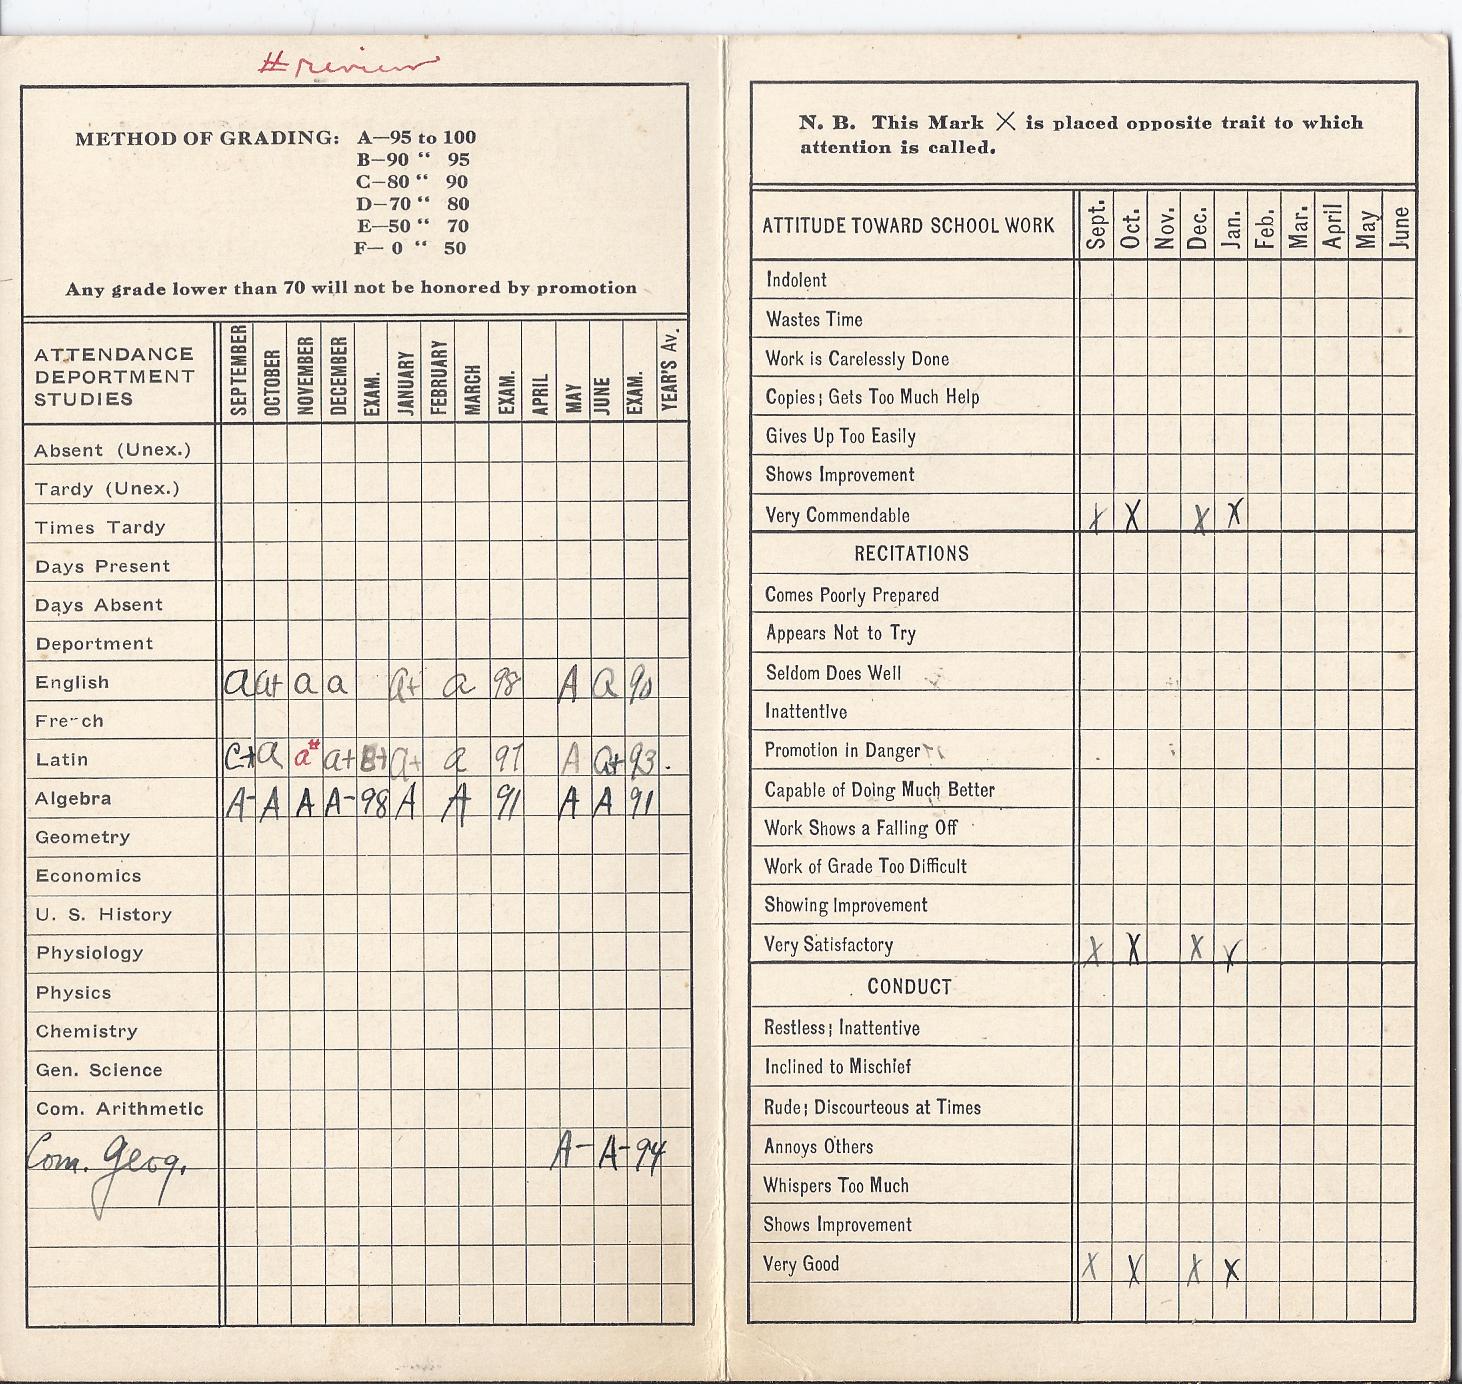 # review
METHOD OF GRADING: A—95 to 100
B—90 “ 95
C—80 “ 90
D—70 “ 80
E—50 “ 70
F— 0 “ 50
Any grade lower than 70 will not be honored by promotion
ATTENDANCE
DEPORTMENT
STUDIES
SEPTEMBER OCTOBER NOVEMBER DECEMBER EXAM. JANUARY FEBRUARY MARCH EXAM. APRIL MAY JUNE EXAM. YEAR'S AV.
Absent (Unex.)
Tardy (Unex.)
Times Tardy
Days Present
Days Absent
Deportment
English a a+ a a a+ a 98 A a 90
French
Latin C+ a a# a+ B+ a+ a 97 A a+ 93.
Algebra A- A A A- 98 A A 91 A A 91
Geometry
Economics
U. S. History
Physiology
Physics
Chemistry
Gen. Science
Com. Arithmetic
Com. Geog. A- A- 94
N. B. This Mark X is placed opposite trait to which
attention is called.
ATTITUDE TOWARD SCHOOL WORK Sept. Oct. Nov. Dec. Jan. Feb. Mar. April May June
Indolent
Wastes Time
Work is Carelessly Done
Copies; Gets Too Much Help
Gives Up Too Easily
Shows Improvement
Very Commendable X X X X
RECITATIONS
Comes Poorly Prepared
Appears Not to Try
Seldom Does Well
Inattentive
Promotion in Danger
Capable of Doing Much Better
Work Shows a Falling Off
Work of Grade Too Difficult
Showing Improvement
Very Satisfactory X X X X
CONDUCT
Restless; Inattentive
Inclined to Mischief
Rude; Discourteous at Times
Annoys Others
Whispers Too Much
Shows Improvement
Very Good X X X X